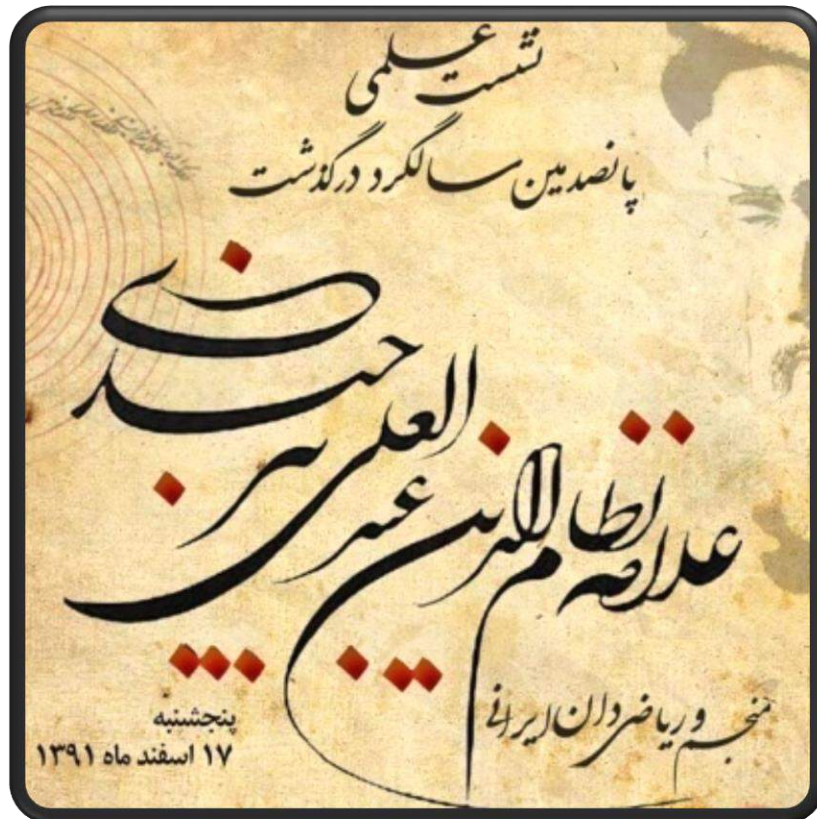 نشست علمی
پانصدمین سالگرد درگذشت
علامه نظام الدین عبدالعلی بیرجندی
منجم و ریاضی دان ایرانی
پنجشنبه
۱۷ اسفند ماه ۱۳۹۱